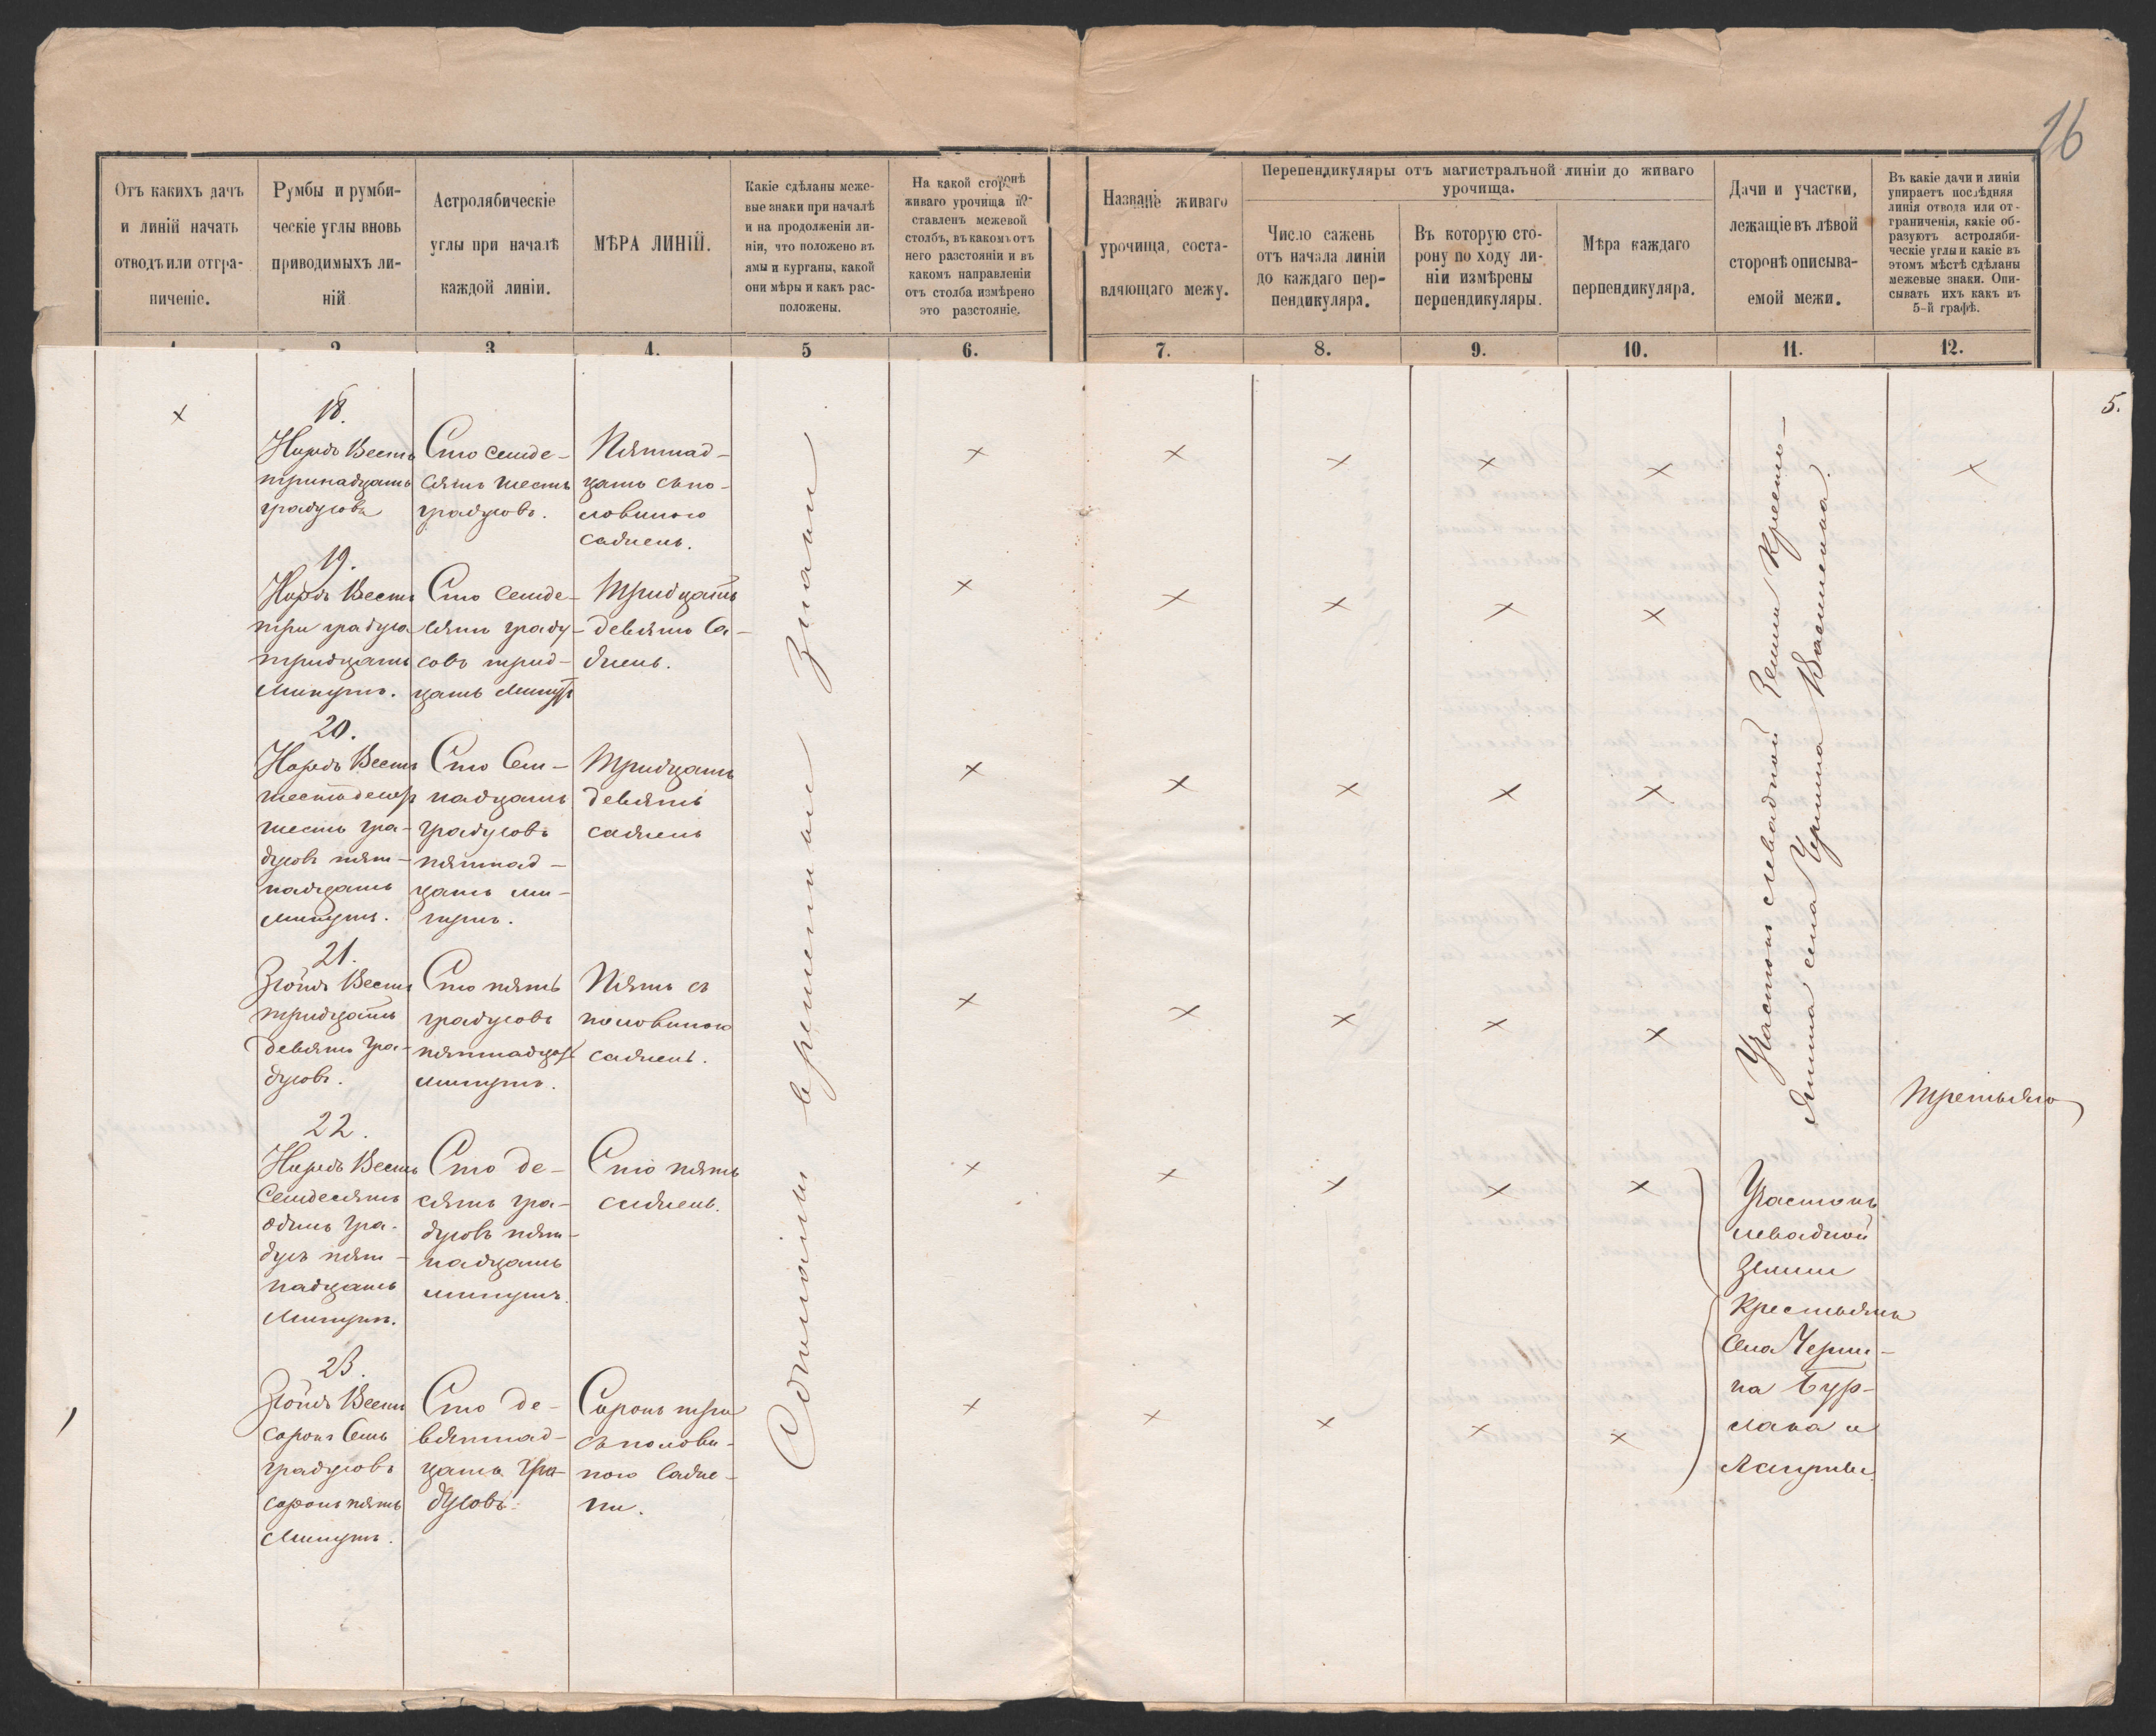 16
Отъ какихъ дачъ
и линій начать
отводъ или отгра-
ниченіе.
Румбы и румби-
ческіе углы вновь
приводимыхъ ли-
ній
Астролябическіе
углы при началѣ
каждой линіи.
МѢРА ЛИНІЙ.
Какіе сдѣланы меже-
вые знаки при началѣ
и на продолженіи ли-
ніи, что положено въ
ямы и курганы, какой
они мѣры и какъ рас-
положены.
На какой сторонѣ
живаго урочища по-
ставленъ межевой
столбъ, въ какомъ отъ
него разстояніи и въ
какомъ направленіи
отъ столба измѣрено
это разстояніе.
Названіе живаго
урочища, соста-
вляющаго межу.
Перепендикуляры отъ магистральной линіи до живаго
урочища.
Число сажень
отъ начала линіи
до каждаго пер-
пендикуляра.
Въ которую сто-
рону по ходу ли-
ніи измѣрены
перпендикуляры.
Мѣра каждаго
перпендикуляра.
Дачи и участки,
лежащіе въ лѣвой
сторонѣ описыва-
емой межи.
Въ какіе дачи и линіи
упираетъ послѣдняя
линія отвода или от-
граниченія, какіе об-
разуютъ астроляби-
ческіе углы и какіе въ
этомъ мѣстѣ сдѣланы
межевые знаки. Опи-
сывать ихъ какъ въ
5-й графѣ.
1. 2 3 4. 5 6. 7. 8. 9. 10. 11. 12.
5.
18.
Нордъ Вестъ
тринадцать
градусовъ
Сто семде-
сятъ шесть
градусовъ.
Пятнад-
цать съ по-
ловиною
сажень.
19.
Нордъ Вестъ
три градуса
тридцать
минутъ.
Сто семде-
сятъ граду-
совъ трид-
цать минутъ
Тридцать
девять са-
жень.
20.
Нордъ Вестъ
шестьдесятъ
шесть гра-
дусовъ пят-
надцать
минутъ.
Сто сем-
надцать
градусовъ
пятнад-
цать ми-
нутъ.
Тридцать
девять
сажень
21.
Зюйдъ Вестъ
тридцать
девять гра-
дусовъ.
Сто пять
градусовъ
пятнадцать
минутъ.
Пять съ
половиною
сажень.
22.
Нордъ Вестъ
семдесятъ
одинъ гра-
дусъ пят-
надцать
минутъ.
Сто де-
сять гра-
дусовъ пят-
надцать
минутъ.
Сто пять
сажень.
23.
Зюйдъ Вестъ
сорокъ семь
градусовъ
сорокъ пять
минутъ.
Сто де-
вятнад-
цать гра-
дусовъ.
Сорокъ три
съ полови-
ною саже-
ни.
временные знаки
Участокъ левадной Земли Кресть-
янина села Чернина Василенка.
Третьяго
Участокъ
левадной
Земли
Крестьянъ
села Черни-
на Бур-
лака и